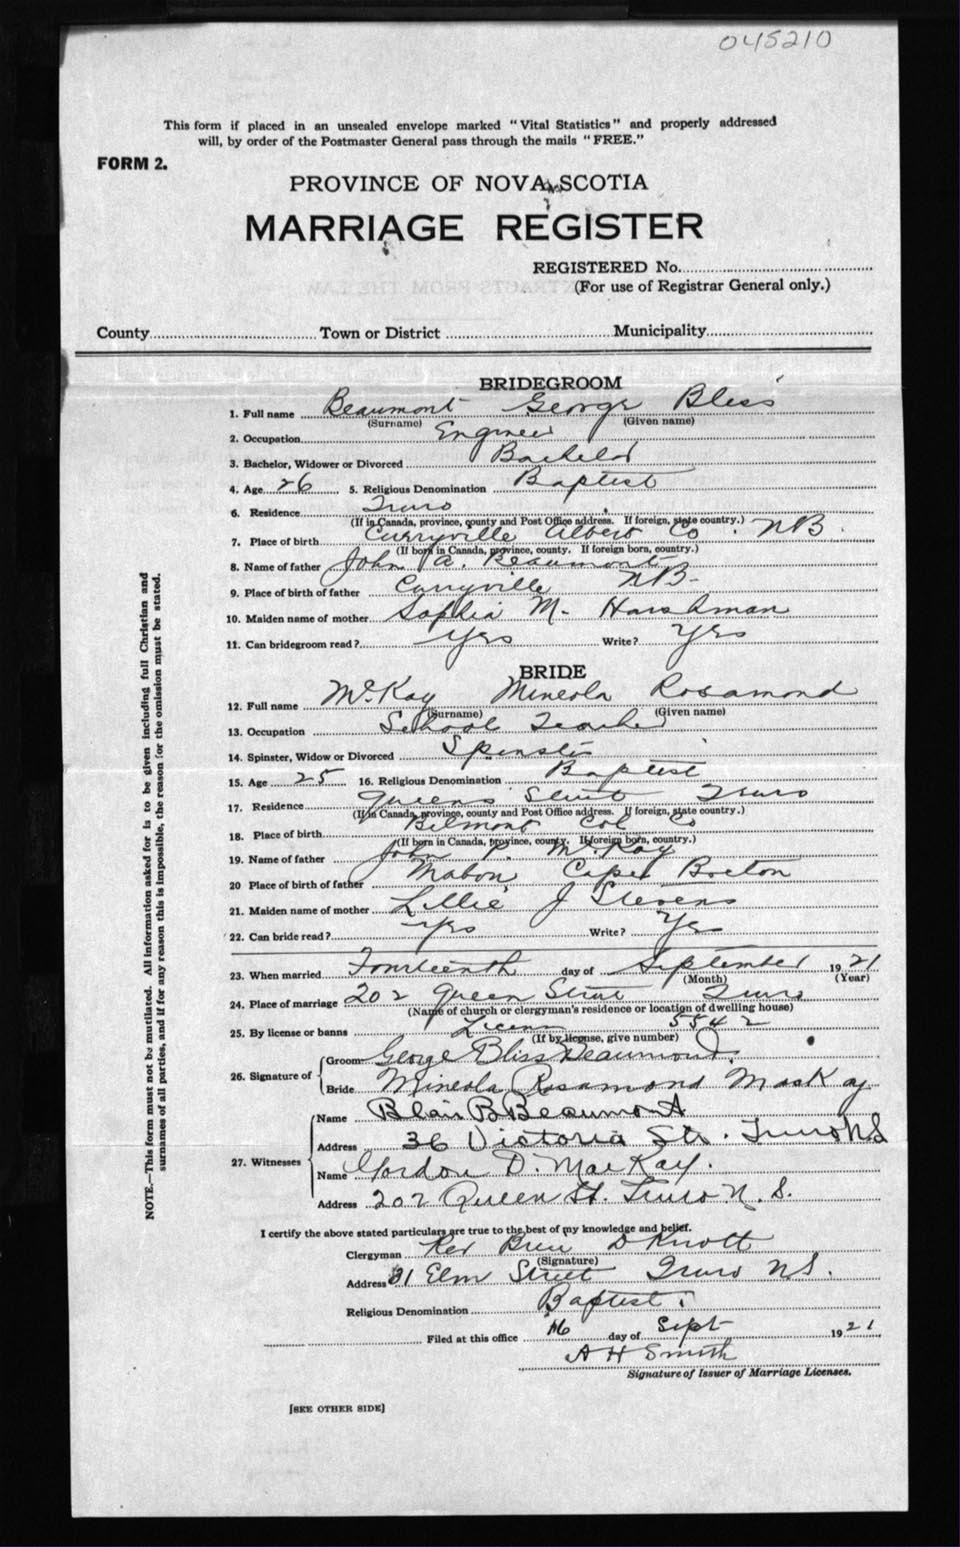 045210
This form if placed in an unsealed envelope marked "Vital Statistics" and properly addressed
will, by order of the Postmaster General pass through the mails "FREE."
FORM 2.
PROVINCE OF NOVA SCOTIA
MARRIAGE REGISTER
REGISTERED No.
(For use of Registrar General only.)
County Town or District Municipality
BRIDEGROOM
1. Full name Beaumont George Bliss
(Surname) (Given name)
2. Occupation Engineer
3. Bachelor, Widower or Divorced Bachelor
4. Age 26 5. Religious Denomination Baptist
6. Residence Truro
(If in Canada, province, county and Post Office address. If foreign, state country.)
7. Place of birth Curryville Albert Co. NB.
(If born in Canada, province, county. If foreign born, country.)
8. Name of father John A. Beaumont
9. Place of birth of father Curryville NB.
10. Maiden name of mother Sophia M. Harshman
11. Can bridegroom read? Yes Write? Yes
BRIDE
12. Full name McKay Mineola Rosamond
(Surname) (Given name)
13. Occupation School Teacher
14. Spinster, Widow or Divorced Spinster
15. Age 25 16. Religious Denomination Baptist
17. Residence Queens Street Truro
(If in Canada, province, county and Post Office address. If foreign, state country.)
18. Place of birth Belmont Col Co
(If born in Canada, province, county. If foreign born, country.)
19. Name of father John P. McKay
20 Place of birth of father Mabou Cape Breton
21. Maiden name of mother Lillie J Stevens
22. Can bride read? Yes Write? Yes
23. When married Fourteenth day of September 1921
(Month) (Year)
24. Place of marriage 202 Queen Street Truro
(Name of church or clergyman's residence or location of dwelling house)
25. By license or banns License 5542
(If by license, give number)
26. Signature of Groom George Bliss Beaumont.
Bride Mineola Rosamond MacKay
27. Witnesses Name Blair B Beaumont
Address 36 Victoria St. Truro NS
Name Gordon D. MacKay.
Address 202 Queen St. Truro N. S.
I certify the above stated particulars are true to the best of my knowledge and belief.
Clergyman Rev D Knott
(Signature)
Address 31 Elm Street Truro NS.
Religious Denomination Baptist.
Filed at this office 16 day of Sept 1921
A H Smith
Signature of Issuer of Marriage Licenses.
[SEE OTHER SIDE]
NOTE.—This form must not be mutilated. All information asked for is to be given including full Christian and
surnames of all parties, and if for any reason this is impossible, the reason for the omission must be stated.